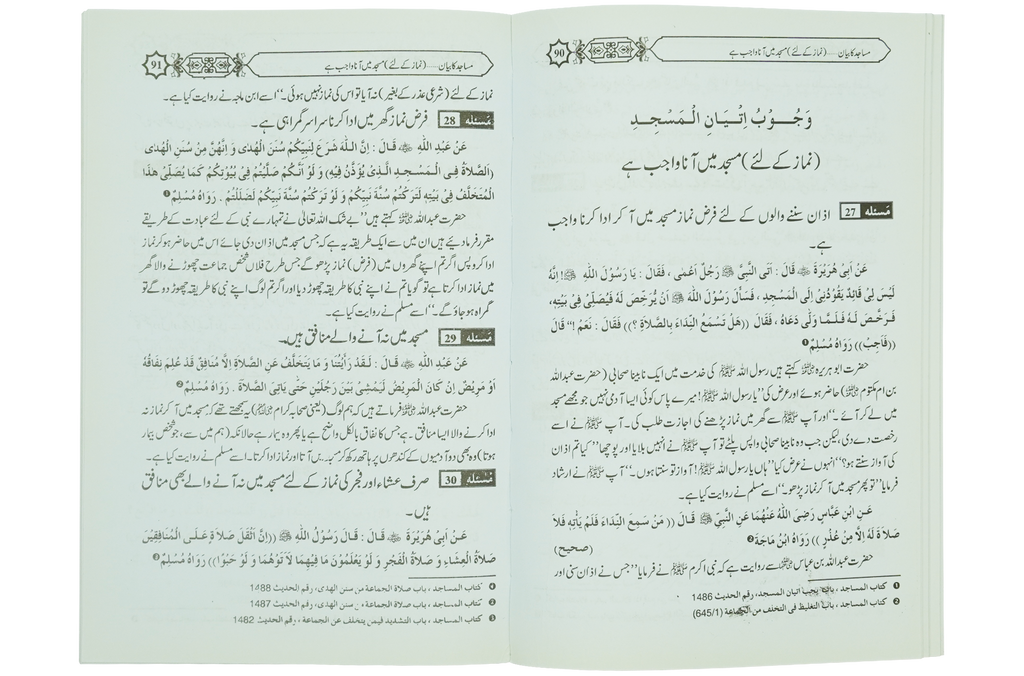 مساجد کا بیان.....(نماز کے لئے) مسجد میں آنا واجب ہے
90
وَجُـوْبُ اِتْيَـانِ الْـمَـسْجِـدِ
(نماز کے لئے) مسجد میں آنا واجب ہے
مَسئله 27 اذان سننے والوں کے لئے فرض نماز مسجد میں آ کر ادا کرنا واجب
ہے۔
عَنْ اَبِىْ هُرَيْرَةَ ﷜ قَالَ : اَتَى النَّبِىَّ ﷺ رَجُلٌ اَعْمٰى ، فَقَالَ : يَا رَسُوْلَ اللّٰهِ ﷺ! اِنَّهُ
لَيْسَ لِىْ قَائِدٌ يَقُوْدُنِىْ اِلَى الْمَسْجِدِ ، فَسَأَلَ رَسُوْلَ اللّٰهِ ﷺ اَنْ يُّرَخِّصَ لَهُ فَيُصَلِّىَ فِىْ بَيْتِهِ،
فَرَخَّصَ لَـهُ فَـلَـمَّـا وَلّٰى دَعَاهُ ، فَقَالَ ((هَلْ تَسْمَعُ النِّدَاءَ بِالصَّلاَةِ ؟)) فَقَالَ : نَعَمْ !" قَالَ
((فَاَجِبْ)) رَوَاهُ مُسْلِمٌ❶
حضرت ابو ہریرہ ﷜ کہتے ہیں رسول اللہ ﷺ کی خدمت میں ایک نابینا صحابی (حضرت عبداللہ
بن ام مکتوم ﷜) حاضر ہوئے اور عرض کی ”یا رسول اللہ ﷺ! میرے پاس کوئی ایسا آدمی نہیں جو مجھے مسجد
میں لے کر آئے۔“ اور آپ ﷺ سے گھر میں نماز پڑھنے کی اجازت طلب کی۔ آپ ﷺ نے اسے
رخصت دے دی لیکن جب وہ نابینا صحابی واپس پلٹے تو آپ ﷺ نے انہیں بلایا اور پوچھا ”کیا تم اذان
کی آواز سنتے ہو؟“ انہوں نے عرض کیا ”ہاں یا رسول اللہ ﷺ! آواز تو سنتا ہوں۔“ آپ ﷺ نے ارشاد
فرمایا ”تو پھر مسجد میں آ کر نماز پڑھو۔“ اسے مسلم نے روایت کیا ہے۔
عَـنِ ابْنِ عَبَّاسٍ رَضِىَ اللّٰهُ عَنْهُمَا عَنِ النَّبِىِّ ﷺ قَالَ (( مَنْ سَمِعَ النِّدَاءَ فَلَمْ يَأْتِهِ فَلاَ
صَلاَةَ لَهُ اِلاَّ مِنْ عُذْرٍ )) رَوَاهُ ابْنُ مَاجَةَ❷ (صحيح)
حضرت عبداللہ بن عباس ﷠ سے روایت ہے کہ نبی اکرم ﷺ نے فرمایا ”جس نے اذان سنی اور
❶ كتاب المساجد ، باب يجب اتيان المسجد، رقم الحديث 1486
❷ كتاب المساجد ، باب التغليظ فى التخلف عن الجماعة (645/1)
مساجد کا بیان.....(نماز کے لئے) مسجد میں آنا واجب ہے
91
نماز کے لئے (شرعی عذر کے بغیر) نہ آیا تو اس کی نماز نہیں ہوئی۔“ اسے ابن ماجہ نے روایت کیا ہے۔
مَسئله 28 فرض نماز گھر میں ادا کرنا سراسر گمراہی ہے۔
عَنْ عَبْدِ اللّٰهِ ﷜ قَـالَ : اِنَّ الـلّٰـهَ شَرَعَ لِنَبِيِّكُمْ سُنَنَ الْهُدٰى وَ اِنَّهُنَّ مِنْ سُنَنِ الْهُدٰى
(الصَّلاَةُ فِـى الْـمَـسْـجِـدِ الَّـذِىْ يُؤَذَّنُ فِيْهِ) وَ لَوْ اَنَّـكُمْ صَلَّيْتُمْ فِىْ بُيُوْتِكُمْ كَمَا يُصَلِّىْ هٰذَا
الْمُتَخَلِّفُ فِىْ بَيْتِهِ لَتَرَكْتُمْ سُنَّةَ نَبِيِّكُمْ وَ لَوْ تَرَكْتُمْ سُنَّةَ نَبِيِّكُمْ لَضَلَلْتُمْ . رَوَاهُ مُسْلِمٌ❶
حضرت عبداللہ ﷜ کہتے ہیں ”بے شک اللہ تعالیٰ نے تمہارے نبی کے لئے عبادت کے طریقے
مقرر فرما دیئے ہیں ان میں سے ایک طریقہ یہ ہے کہ جس مسجد میں اذان دی جائے اس میں حاضر ہو کر نماز
ادا کرو پس اگر تم اپنے گھروں میں (فرض) نماز پڑھو گے جس طرح فلاں شخص جماعت چھوڑنے والا گھر
میں نماز ادا کرتا ہے تو گویا تم نے اپنے نبی کا طریقہ چھوڑ دیا اور اگر تم لوگ اپنے نبی کا طریقہ چھوڑ دو گے تو
گمراہ ہو جاؤ گے۔“ اسے مسلم نے روایت کیا ہے۔
مَسئله 29 مسجد میں نہ آنے والے منافق ہیں۔
عَنْ عَبْدِ اللّٰهِ ﷜ قَـالَ : لَـقَدْ رَاَيْتُنَا وَ مَا يَتَخَلَّفُ عَنِ الصَّلاَةِ اِلاَّ مُنَافِقٌ قَدْ عُلِمَ نِفَاقُهُ
اَوْ مَرِيْضٌ اِنْ كَانَ الْمَرِيْضُ لَيَمْشِىْ بَيْنَ رَجُلَيْنِ حَتّٰى يَاتِىَ الصَّلاَةَ . رَوَاهُ مُسْلِمٌ❷
حضرت عبداللہ ﷜ فرماتے ہیں کہ ہم لوگ (یعنی صحابہ کرام ﷡) یہ سمجھتے تھے کہ مسجد میں آ کر نماز نہ
ادا کرنے والا ایسا منافق ہے جس کا نفاق بالکل واضح ہے یا پھر وہ بیمار ہے حالانکہ (ہم میں سے، جو شخص بیمار
ہوتا) وہ بھی دو آدمیوں کے کندھوں پر ہاتھ رکھ کر مسجد میں آتا اور نماز ادا کرتا۔ اسے مسلم نے روایت کیا ہے۔
مَسئله 30 صرف عشاء اور فجر کی نماز کے لئے مسجد میں نہ آنے والے بھی منافق
ہیں۔
عَنْ اَبِىْ هُرَيْرَةَ ﷜ قَـالَ : قَـالَ رَسُوْلُ اللّٰهِ ﷺ ((اِنَّ اَثْقَلَ صَلاَةٍ عَـلَـى الْمُنَافِقِيْنَ
صَلاَةُ الْعِشَاءِ وَ صَلاَةُ الْفَجْرِ وَ لَوْ يَعْلَمُوْنَ مَا فِيْهِمَا لَاَتَوْهُمَا وَ لَوْ حَبْوًا)) رَوَاهُ مُسْلِمٌ❸
❶ كتاب المساجد ، باب صلاة الجماعة من سنن الهدى، رقم الحديث 1488
❷ كتاب المساجد ، باب صلاة الجماعة من سنن الهدى، رقم الحديث 1487
❸ كتاب المساجد ، باب التشديد فيمن يتخلف عن الجماعة، رقم الحديث 1482